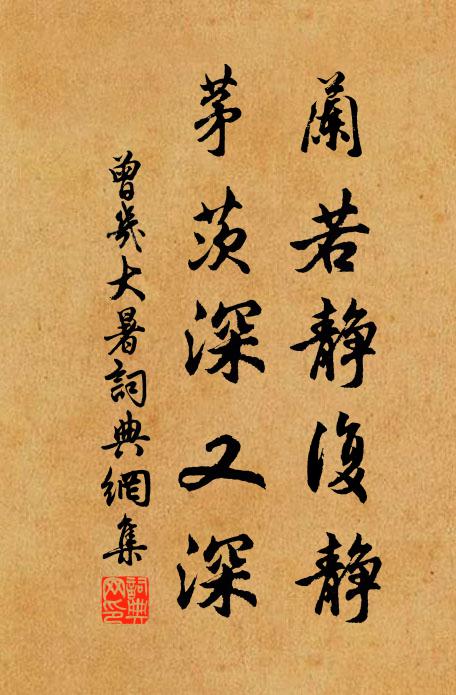 蘭若静復静
茅茨深又深
曾幾大暑詞典網集
詞典網印